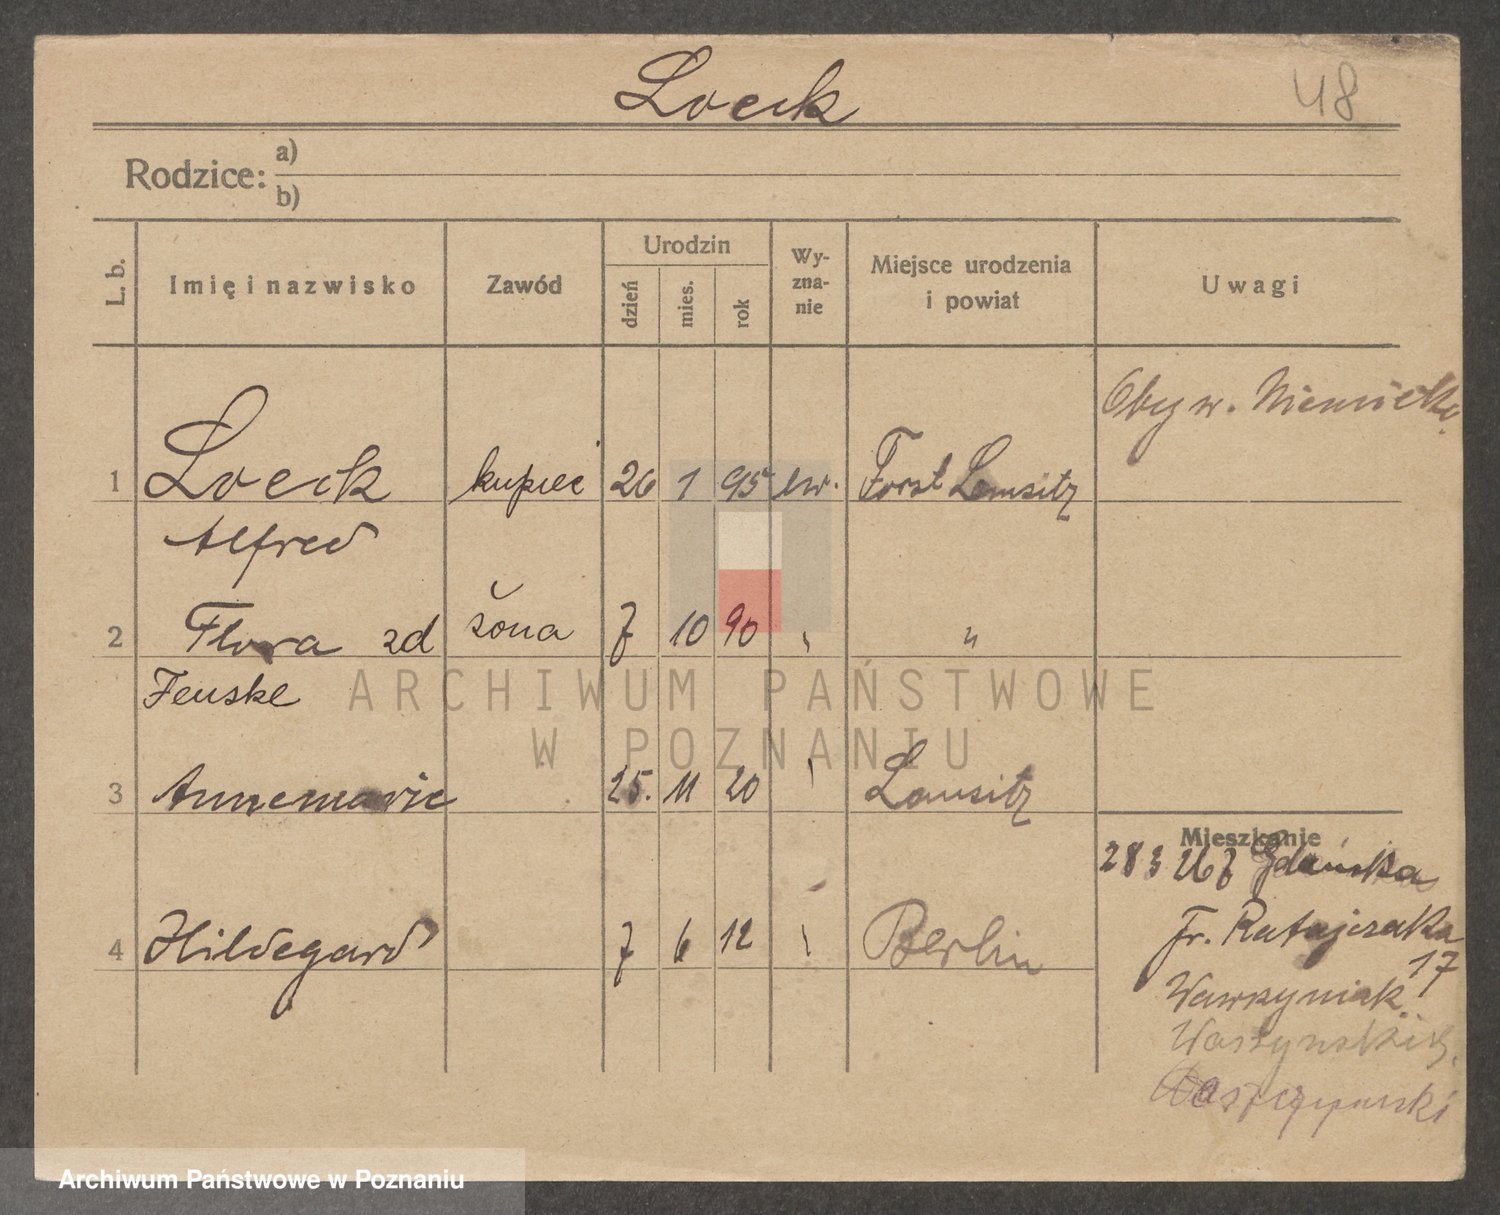 Loeck
48
Rodzice: a)
b)
L. b. Imię i nazwisko Zawód Urodzin dzień mies. rok Wy-zna-nie Miejsce urodzenia i powiat Uwagi
Obyw. Niemiecka
1 Loeck kupiec 26 1 95 ew. Forst Lausitz
Alfred
2 Flora zd żona 7 10 90 " 
Fenske
ARCHIWUM PAŃSTWOWE
W POZNANIU
3 Annemarie 25. 11 20 Lausitz
Mieszkanie
Gdańska
4 Hildegard 7 6 12 Berlin
Fr. Ratajczaka
17
Wawrzyniak
Archiwum Państwowe w Poznaniu